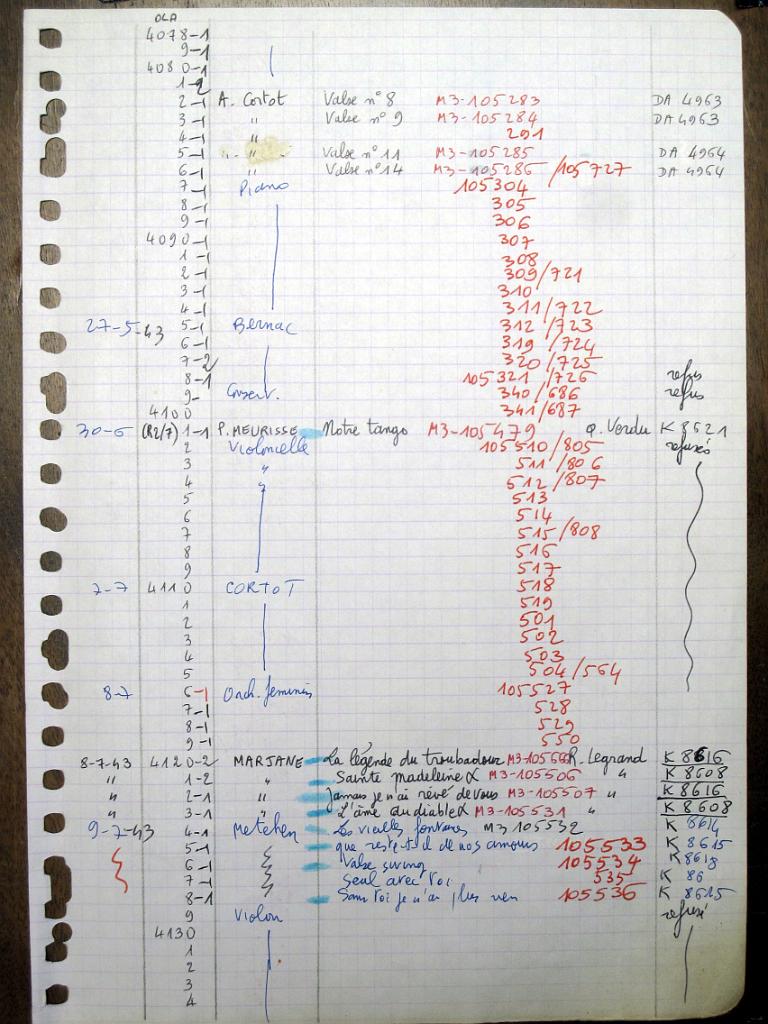 OLA
4078-1
9-1
4080-1
1-2
2-1 A. Cortot Valse n° 8 M3-105283 DA 4963
3-1 " Valse n° 9 M3-105284 DA 4963
4-1 " 291
5-1 " - " - Valse n° 11 M3-105285 DA 4964
6-1 " Valse n° 14 M3-105286 /105727 DA 4964
7-1 Piano 105304
8-1 305
9-1 306
4090-1 307
1-1 308
2-1 309/721
3-1 310
4-1 311/722
27-5-43 5-1 Bernac 312/723
6-1 319/724
7-2 320/725
8-1 105321/726 refus
9- Conserv. 340/686 refus
4100 341/687
30-6 (R2/7) 1-1 P. MEURISSE Notre tango M3-105479 φ. Verdu K 8621
2 Violoncelle 105510/805 refusés
3 " 511/806
4 " 512/807
5 513
6 514
7 515/808
8 516
9 517
7-7 4110 CORTOT 518
1 519
2 501
3 502
4 503
5 504/564
8-7 6-1 Orch. feminin 105527
7-1 528
8-1 529
9-1 550
8-7-43 4120-2 MARJANE La légende du troubadour R. Legrand K 8616
" 1-2 " Sainte madeleine α M3-105506 " K 8608
" 2-1 " Jamais je n'ai rêvé de vous M3-105507 " K 8616
" 3-1 " L'âme au diable α M3-105531 " K 8608
9-7-43 4-1 Metehen Les vieilles fontaines M3 105532 K 8614
5-1 que reste-t-il de nos amours 105533 K 8615
6-1 Valse swing 105534 K 8618
7-1 Seul avec Toi 535 K 86
8-1 Sans toi je n'ai plus rien 105536 K 8615
9 Violon refusé
4130
1
2
3
4